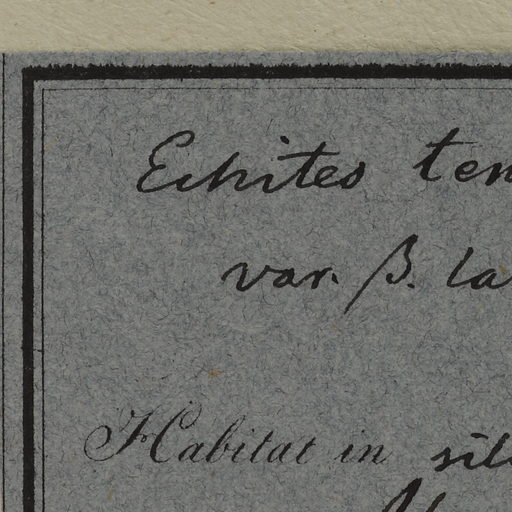 Echites ten
var. β. la
Habitat in sil